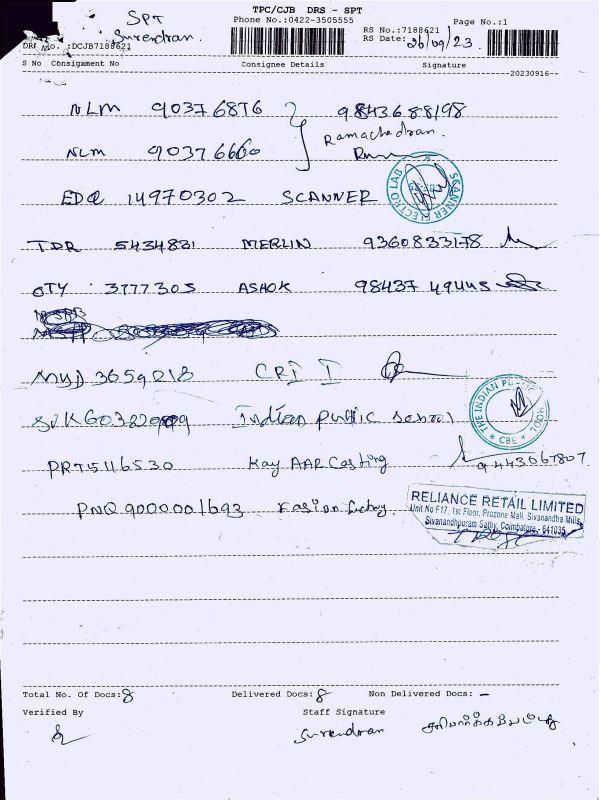 TPC/CJB DRS - SPT
SPT
Phone No.:0422-3505555
Page No.:1
Surendran.
RS No.:7188621
RS Date: 26/09/23
DRS No. :DCJB7188621
S No Consignment No Consignee Details Signature
--20230916--
NLM 90376876 9843688198
Ramachadran.
NLM 90376660
EDQ 14970302 SCANNER
SCANNER ELECTRO LAB
TDR 5434831 MERLIN 9360833178
OTY 3777305 ASHOK 98437 49445
MUJ 3659218 CRI I
SVK60322909 Indian public school
THE INDIAN PUBLIC SCHOOL
* CBE *
PRT546530 Kay AAR Casting 9443567807
PNQ9000001693 Fasion factory
RELIANCE RETAIL LIMITED
Unit No F17, 1st Floor, Prozone Mall, Sivanandha Mills,
Sivanandhpuram Sathy, Coimbatore - 641035
Total No. Of Docs: 8 Delivered Docs: 8 Non Delivered Docs: -
Verified By Staff Signature
Surendran